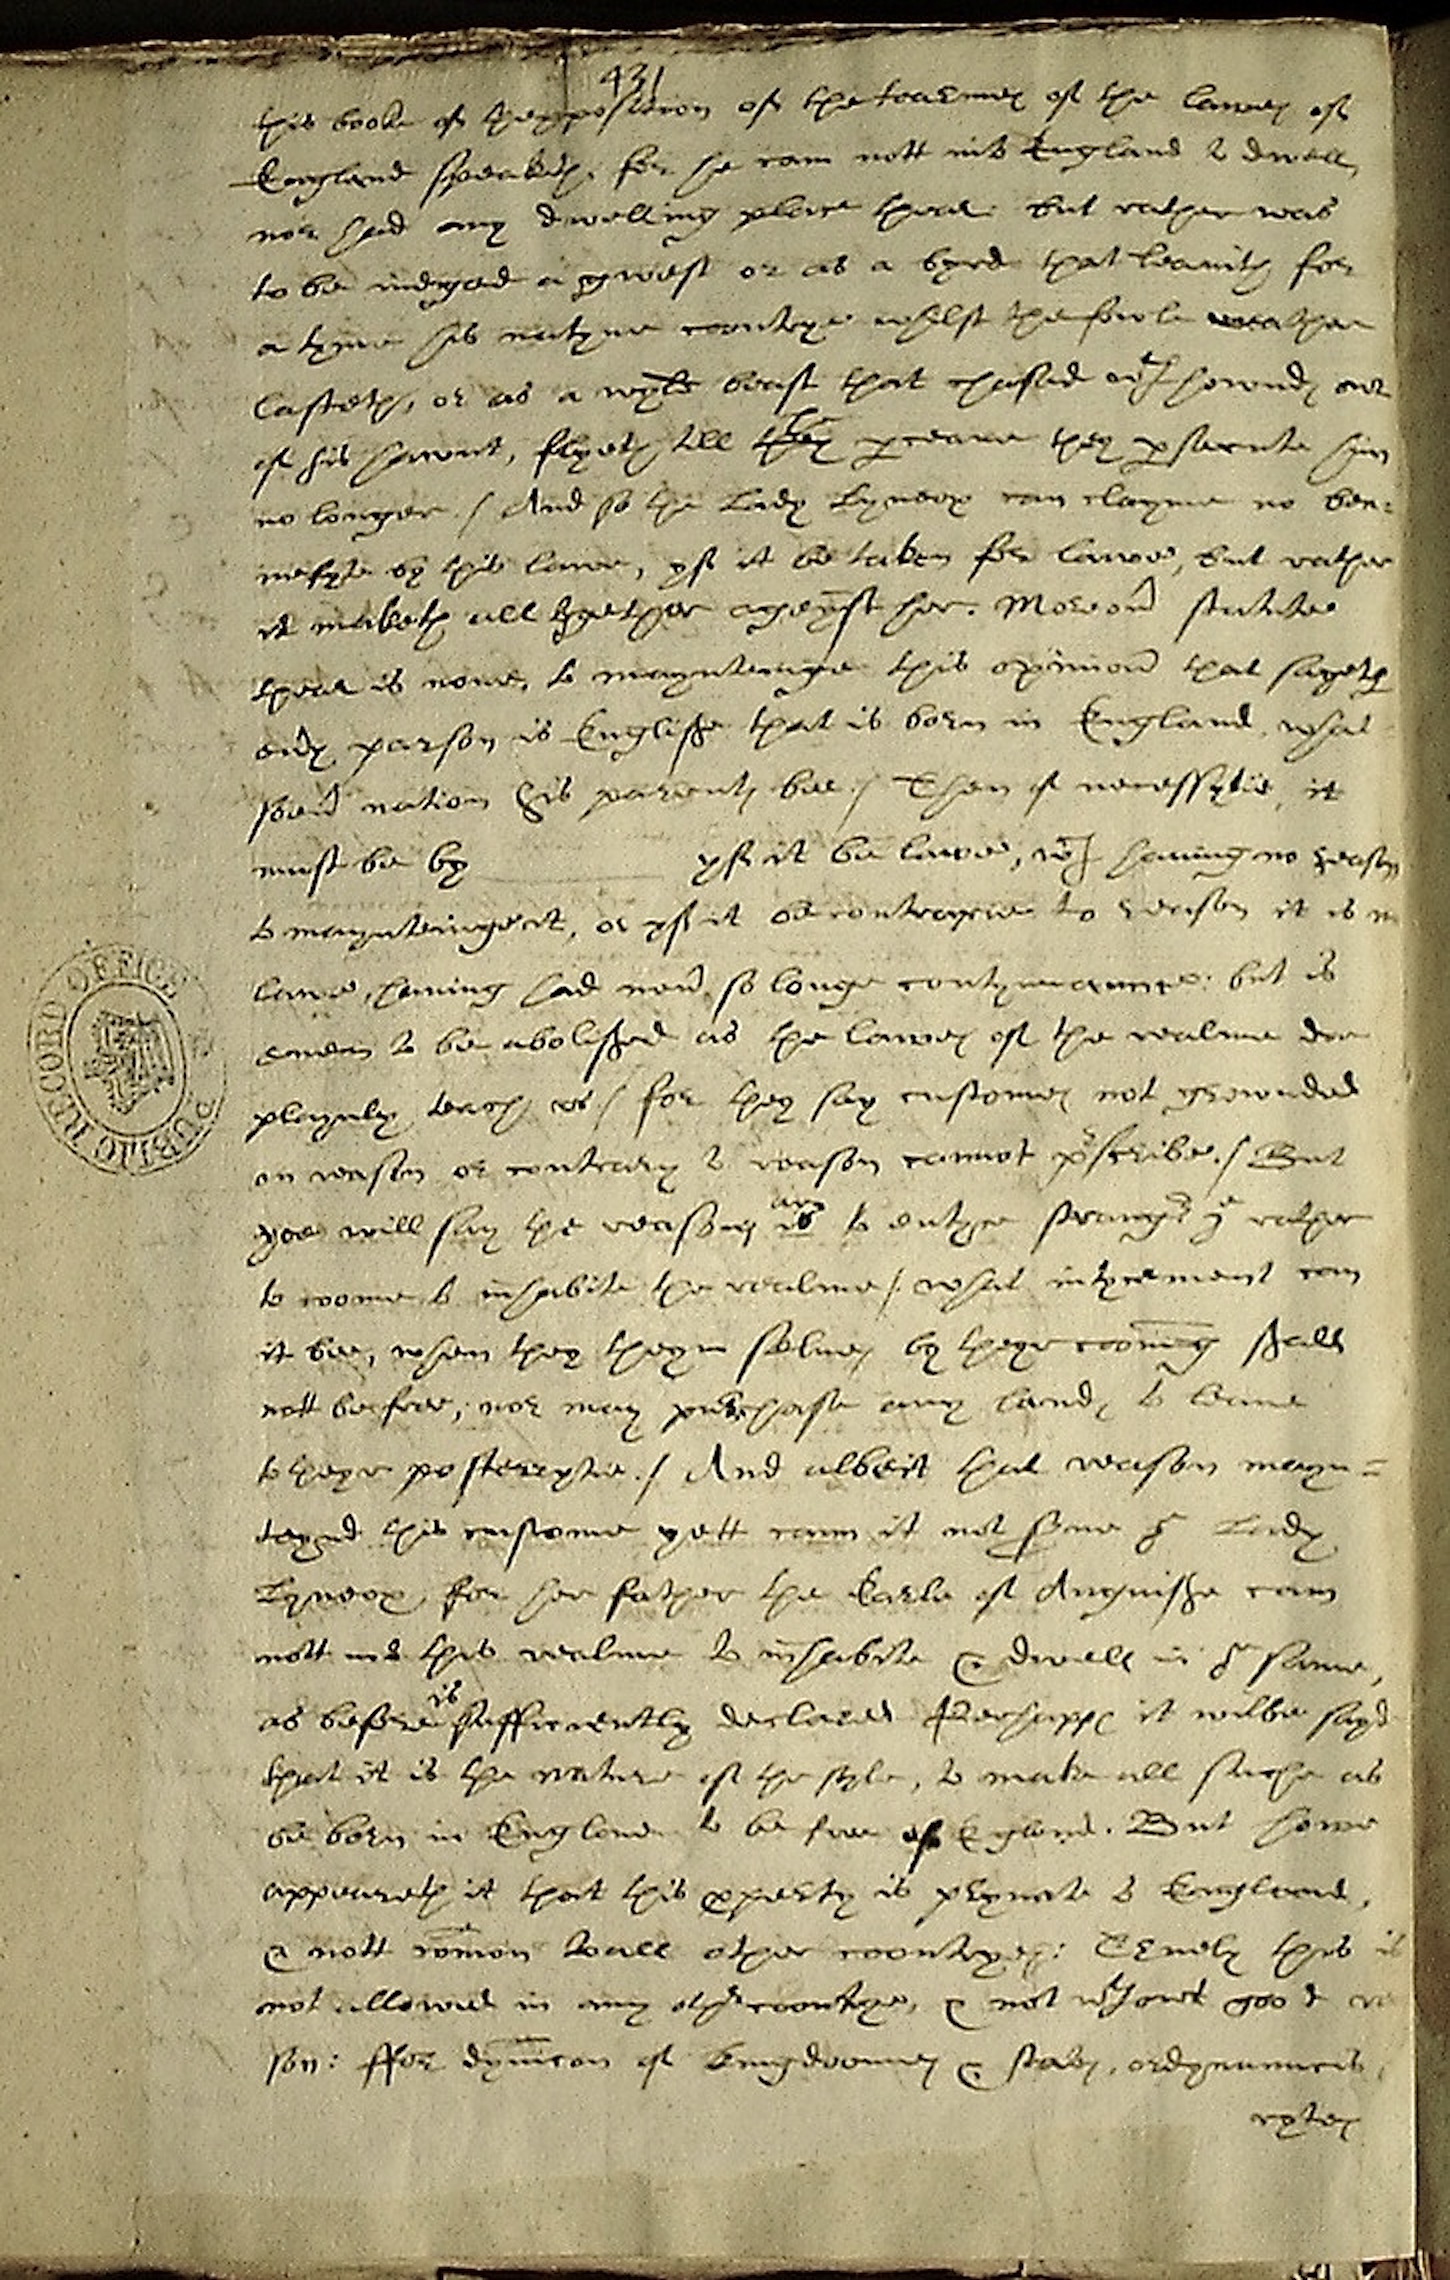 431
this booke of thexposition of the tearmes of the lawes of
England speaketh. for he cam nott into England to dwell,
nor had any dwelling place thear. but rather was
to be iudged a gwest or as a byrd that leavith for
a tyme his natyue contrye whilst the fowle weather
lasteth, or as a wylde beast that chased wth howndes out
of his hawnt, flyeth till he perceaue they persecute him
no longer./ And so the Lady Lyneox can clayme no ben=
nefyte by this lawe, yf it be taken for lawe, but rather
it maketh all together ageynst her. Moreouer statute
thear is none, to maynteinge this opinion that sayeth
euery parson is Englisshe that is born in England, what
soeuer nation his parentes bee./ Then of necessytie, it
must be by yf it be lawe, wch hauing no reason
to maynteinge it, or yf it be contrarye to reason it is no
lawe, hauing had neuer so longe contynuaunce: but is
euen to be abolisshed as the lawes of the realme doe
playnly teach vs/ for they say customes not grownded
on reason or contrary to reason cannot prescribe./ But
yoe will say the reasons are is to entyce straungers ye rather
to coome to inhabite the realme/. what intycement can
it bee, when they theym selues by theyr cooming shall
nott be free, nor may purchase any landes to leaue
to theyr posterytie./ And albeit that reason mayn=
teynd this custome yett cann it not serue ye Lady
Lyneox, for her father the Earle of Anguisshe cam
nott into this realme to inhabite & dwell in ye same,
as before is sufficiently declared Perhapps it wilbe sayd
that it is the nature of the soyle, to make all suche as
be born in England to be free of England. But howe
appeareth it that this property is pryuate to England,
& nott common to all other coontryes: Truely this is
not allowed in any other coontrye, & not wthowt good rea
son: ffor dyuision of kingdoomes & states, ordynaunces,
rytes
PUBLIC RECORD OFFICE